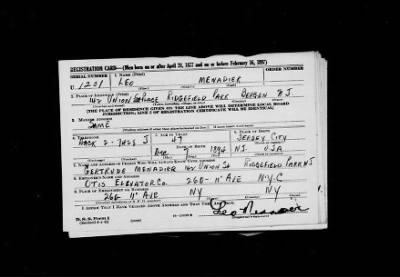 REGISTRATION CARD—(Men born on or after April 28, 1877 and on or before February 16, 1897)
SERIAL NUMBER 1. NAME (Print) ORDER NUMBER
U 1201 LEO MENADIER
2. PLACE OF RESIDENCE (Print)
UNION PLACE RIDGEFIELD PARK BERGEN N J
[THE PLACE OF RESIDENCE GIVEN ON THE LINE ABOVE WILL DETERMINE LOCAL BOARD
JURISDICTION; LINE 2 OF REGISTRATION CERTIFICATE WILL BE IDENTICAL]
3. MAILING ADDRESS
SAME
4. TELEPHONE 5. AGE IN YEARS 6. PLACE OF BIRTH
47 JERSEY CITY
DATE OF BIRTH
HACK 2- J DEC 7 1894 N.J. USA
7. NAME AND ADDRESS OF PERSON WHO WILL ALWAYS KNOW YOUR ADDRESS
GERTRUDE MENADIER UNION RIDGEFIELD PARK NJ
8. EMPLOYER'S NAME AND ADDRESS
OTIS ELEVATOR CO. 260- 11 AVE N.Y.C
9. PLACE OF EMPLOYMENT OR BUSINESS
260 11 AVE NY NY
I AFFIRM THAT I HAVE VERIFIED ABOVE ANSWERS AND THAT THEY ARE TRUE.
D. S. S. Form 1
Leo Menadier